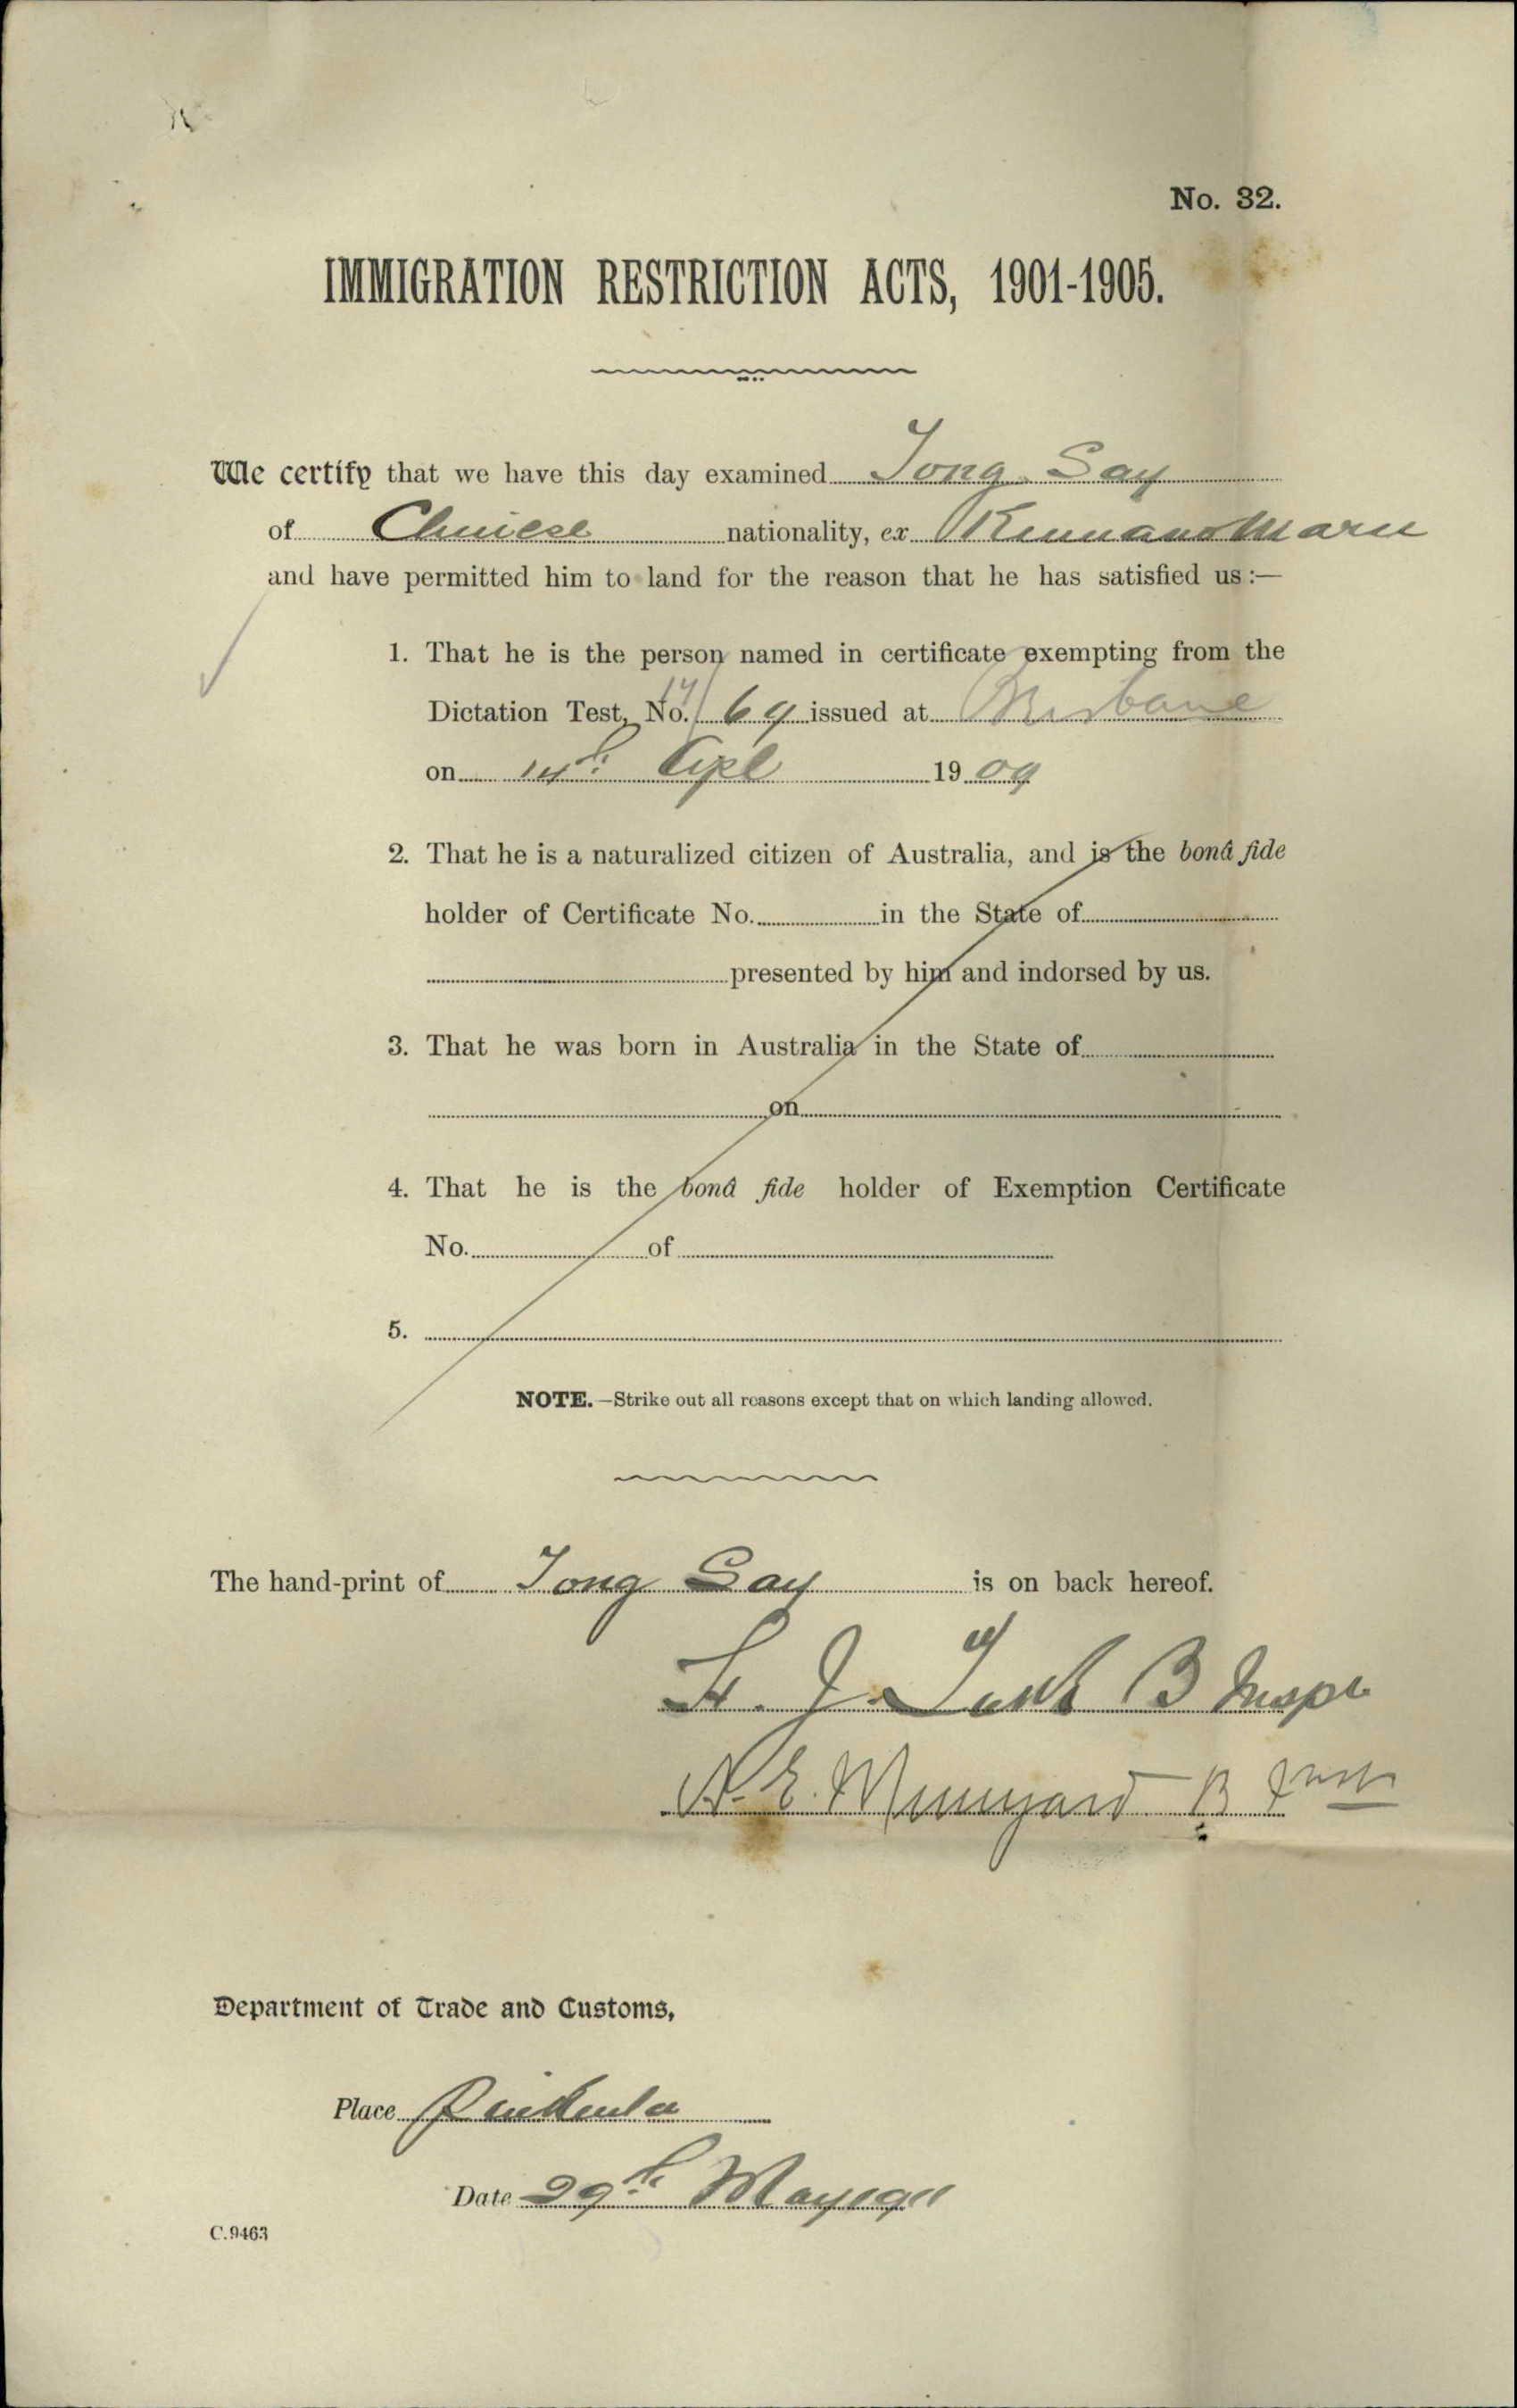 No. 32.
IMMIGRATION RESTRICTION ACTS, 1901-1905.
We certify that we have this day examined Tong Say
of Chinese nationality, ex Kumano Maru
and have permitted him to land for the reason that he has satisfied us:—
1. That he is the person named in certificate exempting from the
Dictation Test, No. 69 issued at Brisbane
on 14th Apl 1909
2. That he is a naturalized citizen of Australia, and is the bonâ fide
holder of Certificate No. in the State of
presented by him and indorsed by us.
3. That he was born in Australia in the State of
on
4. That he is the bonâ fide holder of Exemption Certificate
No. of
5.
NOTE.—Strike out all reasons except that on which landing allowed.
The hand-print of Tong Say is on back hereof.
J. B Inspr
E. Munyard B
Department of Trade and Customs,
Place Pinkenba
Date 29th May 1911
C.9463